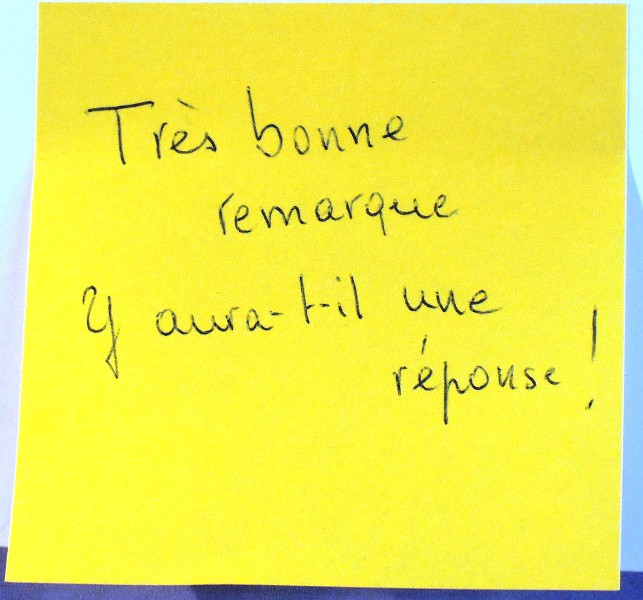 Très bonne
remarque
Y aura-t-il une
réponse !